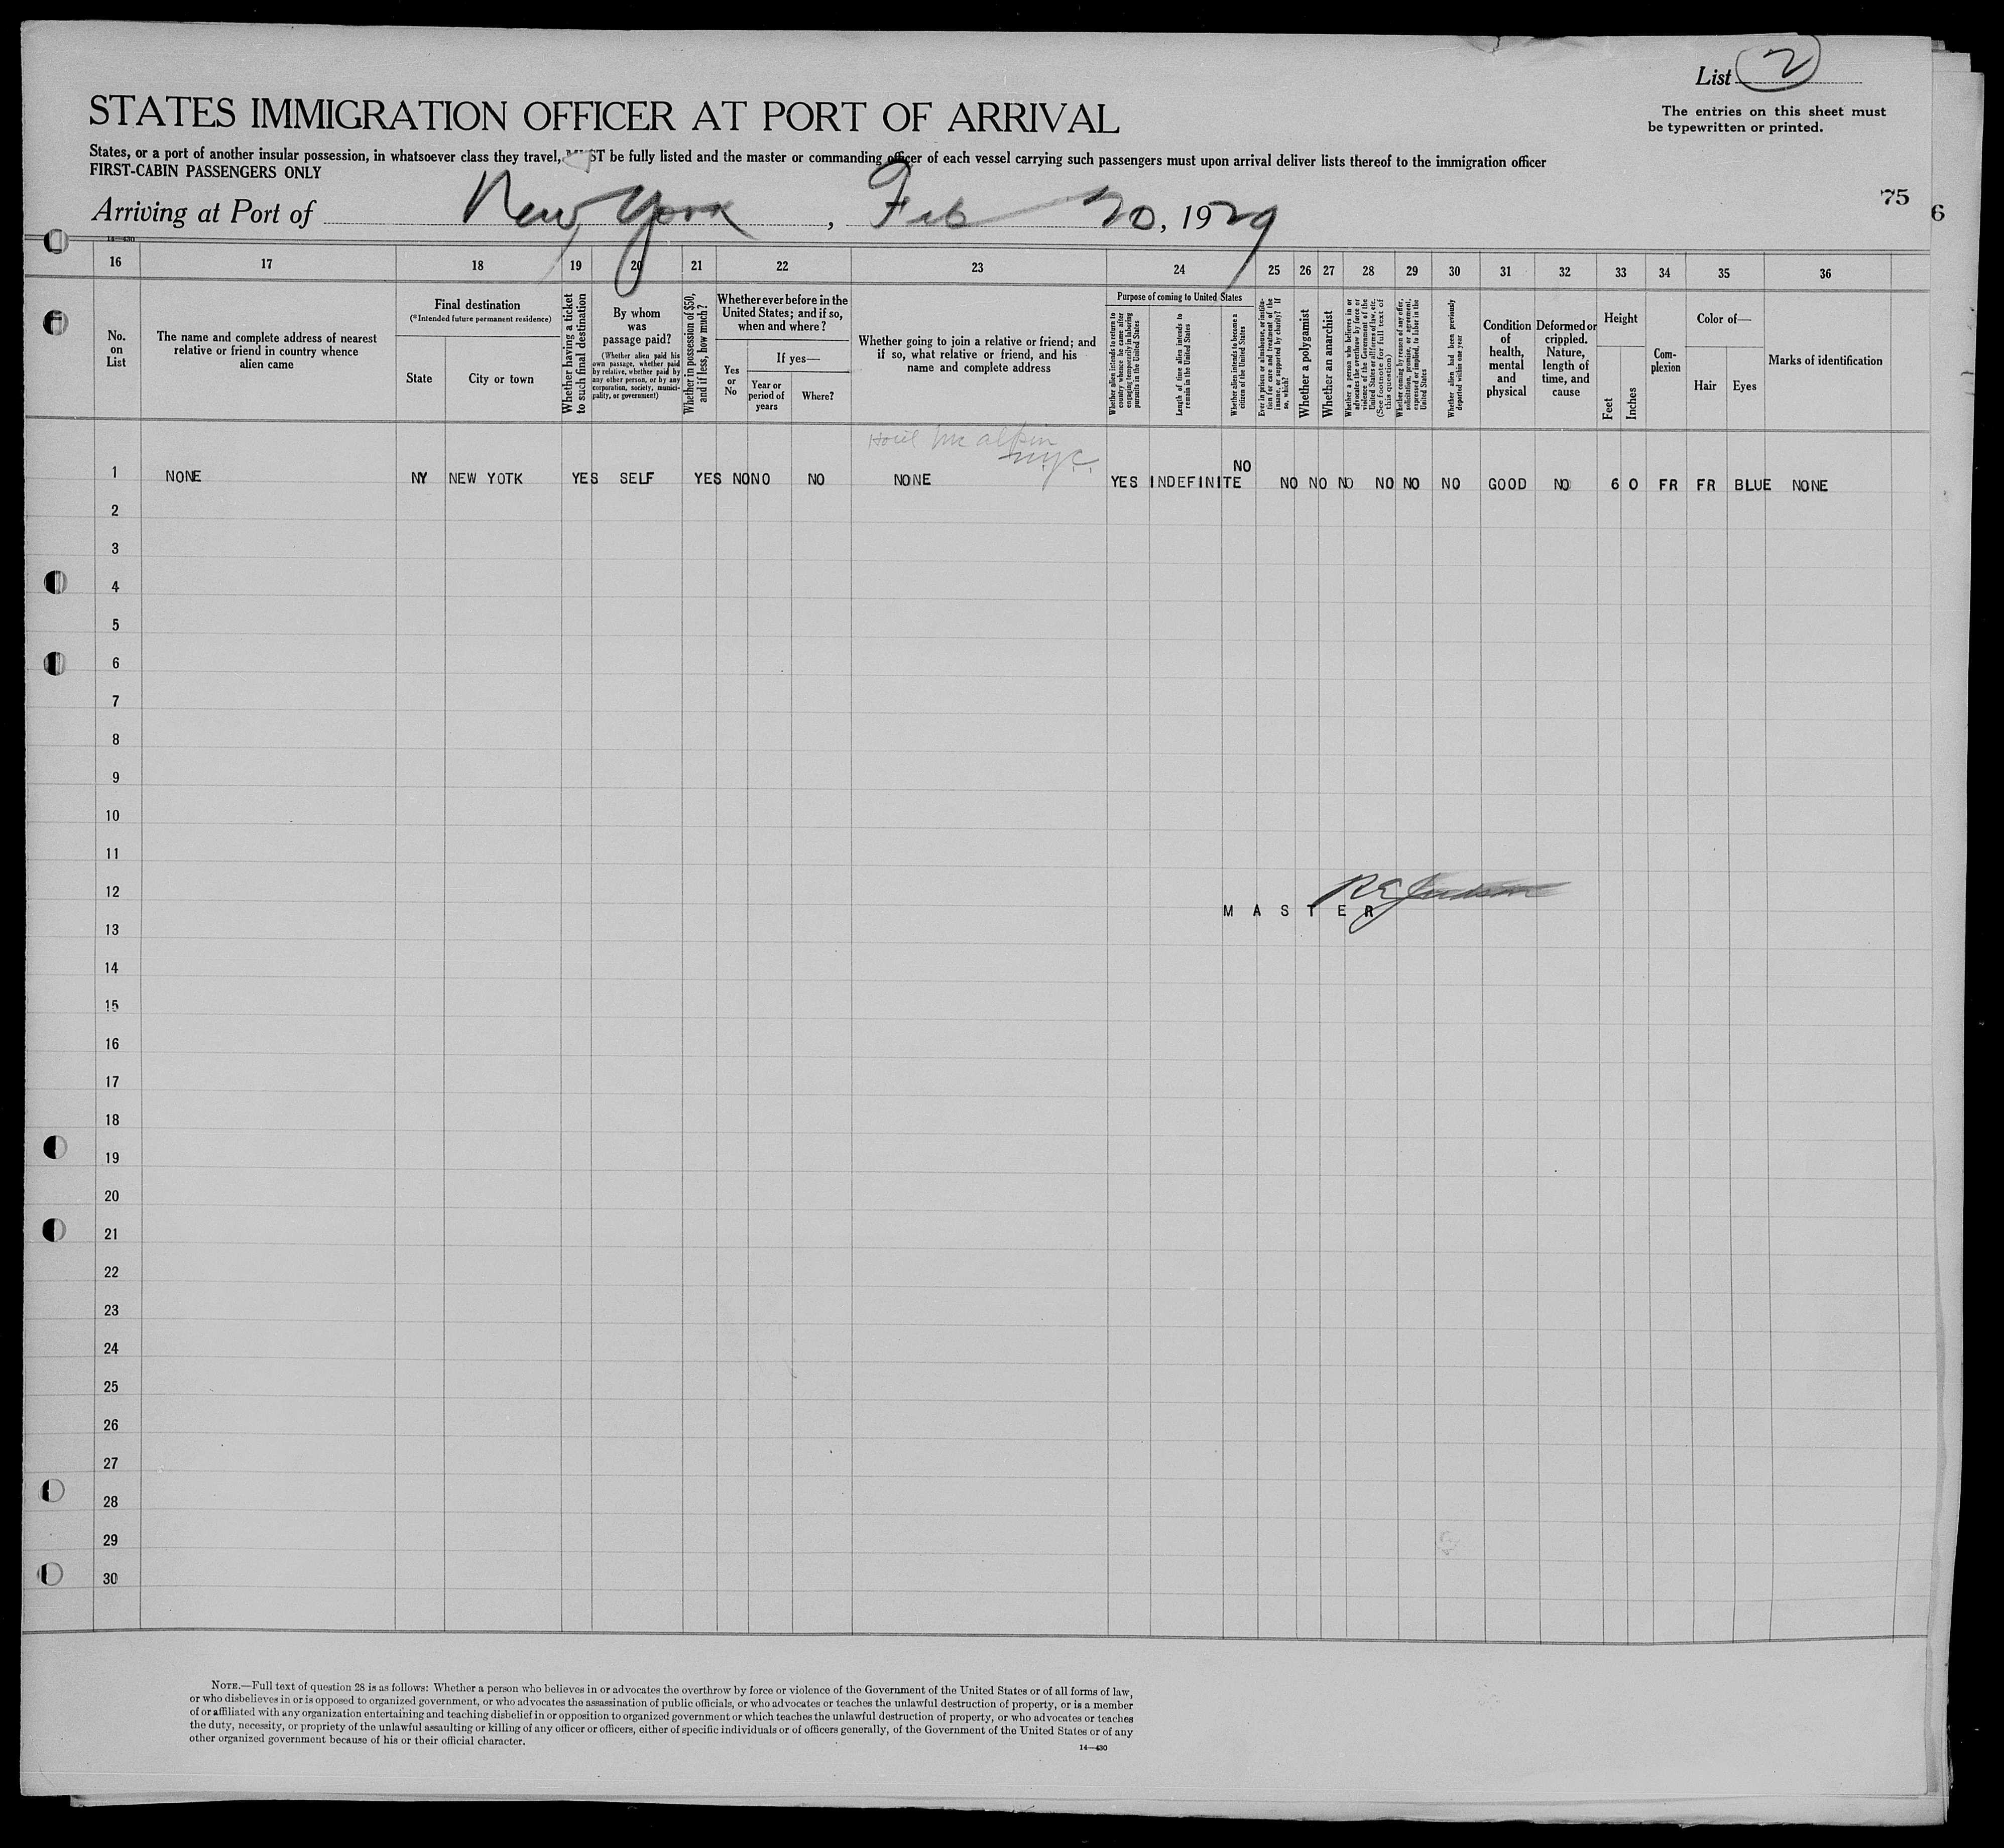 List 2
STATES IMMIGRATION OFFICER AT PORT OF ARRIVAL
The entries on this sheet must
be typewritten or printed.
States, or a port of another insular possession, in whatsoever class they travel, MUST be fully listed and the master or commanding officer of each vessel carrying such passengers must upon arrival deliver lists thereof to the immigration officer
FIRST-CABIN PASSENGERS ONLY
75
6
Arriving at Port of New York, Feb 20, 1929
14—430
16 17 18 19 20 21 22 23 24 25 26 27 28 29 30 31 32 33 34 35 36
No.
on
List
The name and complete address of nearest
relative or friend in country whence
alien came
Final destination
(*Intended future permanent residence)
State
City or town
Whether having a ticket
to such final destination
By whom
was
passage paid?
(Whether alien paid his
own passage, whether paid
by relative, whether paid by
any other person, or by any
corporation, society, munici-
pality, or government)
Whether in possession of $50,
and if less, how much?
Whether ever before in the
United States; and if so,
when and where?
Yes
or
No
If yes—
Year or
period of
years
Where?
Whether going to join a relative or friend; and
if so, what relative or friend, and his
name and complete address
Purpose of coming to United States
Whether alien intends to return to
country whence he came after
engaging temporarily in laboring
pursuits in the United States
Length of time alien intends to
remain in the United States
Whether alien intends to become a
citizen of the United States
Ever in prison or almshouse, or institu-
tion for care and treatment of the
insane, or supported by charity? If
so, which?
Whether a polygamist
Whether an anarchist
Whether a person who believes in or
advocates the overthrow by force or
violence of the Government of the
United States or all forms of law, etc.
(See footnote for full text of
this question)
Whether coming by reason of any offer,
solicitation, promise, or agreement,
expressed or implied, to labor in the
United States
Whether alien had been previously
deported within one year
Condition
of
health,
mental
and
physical
Deformed or
crippled.
Nature,
length of
time, and
cause
Height
Feet
Inches
Com-
plexion
Color of—
Hair
Eyes
Marks of identification
Hotel McAlpin
N.Y.C.
NO
1 NONE NY NEW YOTK YES SELF YES NONO NO NONE YES INDEFINITE NO NO NO NO NO NO GOOD NO 6 0 FR FR BLUE NONE
2
3
4
5
6
7
8
9
10
11
12
M A S T E R
13
14
15
16
17
18
19
20
21
22
23
24
25
26
27
28
29
30
NOTE.—Full text of question 28 is as follows: Whether a person who believes in or advocates the overthrow by force or violence of the Government of the United States or of all forms of law,
or who disbelieves in or is opposed to organized government, or who advocates the assassination of public officials, or who advocates or teaches the unlawful destruction of property, or is a member
of or affiliated with any organization entertaining and teaching disbelief in or opposition to organized government or which teaches the unlawful destruction of property, or who advocates or teaches
the duty, necessity, or propriety of the unlawful assaulting or killing of any officer or officers, either of specific individuals or of officers generally, of the Government of the United States or of any
other organized government because of his or their official character.
14—430